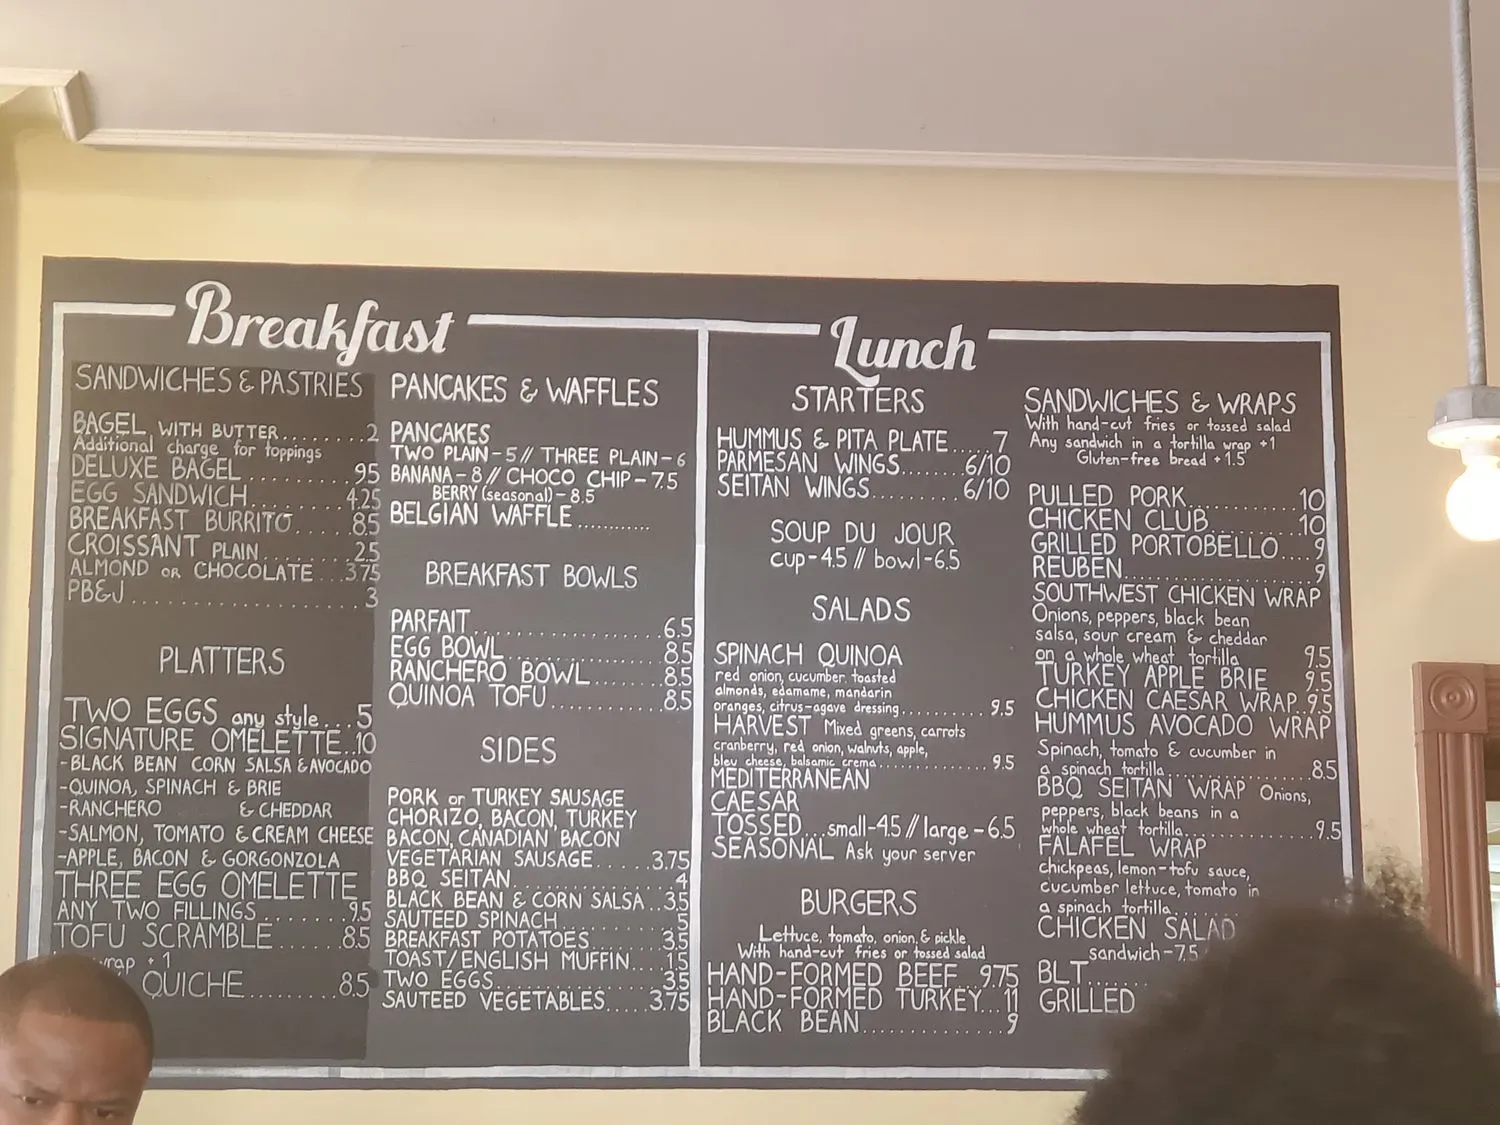 Breakfast
SANDWICHES & PASTRIES
BAGEL WITH BUTTER........2
Additional charge for toppings
DELUXE BAGEL..........95
EGG SANDWICH..........4.25
BREAKFAST BURRITO......85
CROISSANT PLAIN..........25
ALMOND OR CHOCOLATE...375
PB&J......................3
PLATTERS
TWO EGGS any style...5
SIGNATURE OMELETTE..10
-BLACK BEAN CORN SALSA & AVOCADO
-QUINOA, SPINACH & BRIE
-RANCHERO & CHEDDAR
-SALMON, TOMATO & CREAM CHEESE
-APPLE, BACON & GORGONZOLA
THREE EGG OMELETTE
ANY TWO FILLINGS.........95
TOFU SCRAMBLE......85
wrap +1
QUICHE.........85
PANCAKES & WAFFLES
PANCAKES
TWO PLAIN-5 // THREE PLAIN-6
BANANA-8 // CHOCO CHIP-7.5
BERRY (seasonal)-8.5
BELGIAN WAFFLE...........
BREAKFAST BOWLS
PARFAIT....................6.5
EGG BOWL.................8.5
RANCHERO BOWL........8.5
QUINOA TOFU............8.5
SIDES
PORK or TURKEY SAUSAGE
CHORIZO, BACON, TURKEY
BACON, CANADIAN BACON
VEGETARIAN SAUSAGE......3.75
BBQ SEITAN.................4
BLACK BEAN & CORN SALSA..35
SAUTEED SPINACH...........5
BREAKFAST POTATOES.......35
TOAST/ENGLISH MUFFIN....1.5
TWO EGGS.................35
SAUTEED VEGETABLES.....3.75
Lunch
STARTERS
HUMMUS & PITA PLATE....7
PARMESAN WINGS.......6/10
SEITAN WINGS..........6/10
SOUP DU JOUR
cup-4.5 // bowl-6.5
SALADS
SPINACH QUINOA
red onion, cucumber, toasted
almonds, edamame, mandarin
oranges, citrus-agave dressing..........9.5
HARVEST Mixed greens, carrots
cranberry, red onion, walnuts, apple,
bleu cheese, balsamic crema.............9.5
MEDITERRANEAN
CAESAR
TOSSED...small-45 // large-6.5
SEASONAL Ask your server
BURGERS
Lettuce, tomato, onion, & pickle
With hand-cut fries or tossed salad
HAND-FORMED BEEF..9.75
HAND-FORMED TURKEY..11
BLACK BEAN.............9
SANDWICHES & WRAPS
With hand-cut fries or tossed salad
Any sandwich in a tortilla wrap +1
Gluten-free bread +1.5
PULLED PORK...........10
CHICKEN CLUB..........10
GRILLED PORTOBELLO....9
REUBEN...................9
SOUTHWEST CHICKEN WRAP
Onions, peppers, black bean
salsa, sour cream & cheddar
on a whole wheat tortilla 9.5
TURKEY APPLE BRIE 9.5
CHICKEN CAESAR WRAP..9.5
HUMMUS AVOCADO WRAP
Spinach, tomato & cucumber in
a spinach tortilla..................8.5
BBQ SEITAN WRAP Onions,
peppers, black beans in a
whole wheat tortilla................9.5
FALAFEL WRAP
chickpeas, lemon-tofu sauce,
cucumber lettuce, tomato in
a spinach tortilla........
CHICKEN SALAD
sandwich-7.5
BLT......
GRILLED